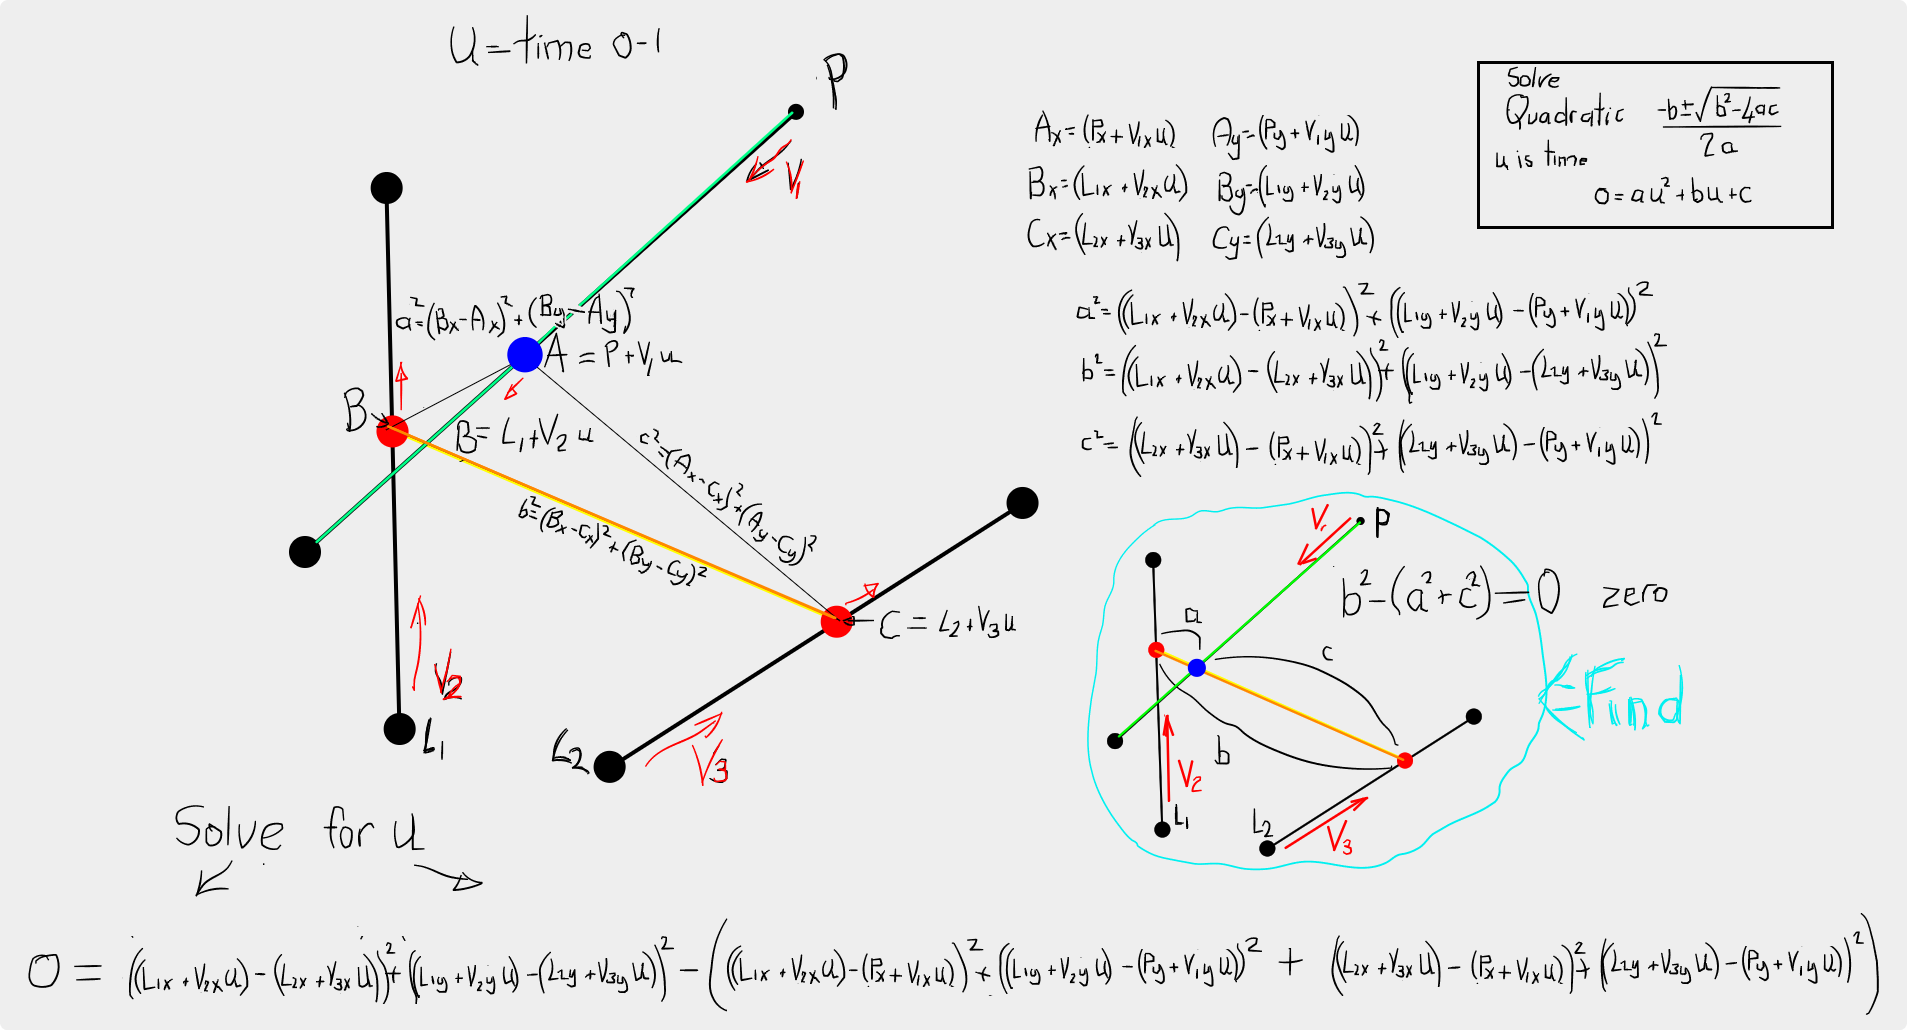 U = time 0-1
P
V₁
a² = (Bx - Ax)² + (By - Ay)²
A = P + V₁u
B
B = L₁ + V₂ u
c² = (Ax - Cx)² + (Ay - Cy)²
b² = (Bx - Cx)² + (By - Cy)²
C = L₂ + V₃ u
V₂
L₁
L₂
V₃
Solve for u
Ax = (Px + V₁x u) Ay = (Py + V₁y u)
Bx = (L₁x + V₂x u) By = (L₁y + V₂y u)
Cx = (L₂x + V₃x u) Cy = (L₂y + V₃y u)
Solve
Quadratic
-b ± √b² - 4ac
2a
u is time
0 = au² + bu + c
a² = ((L₁x + V₂x u) - (Px + V₁x u))² + ((L₁y + V₂y u) - (Py + V₁y u))²
b² = ((L₁x + V₂x u) - (L₂x + V₃x u))² + ((L₁y + V₂y u) - (L₂y + V₃y u))²
c² = ((L₂x + V₃x u) - (Px + V₁x u))² + ((L₂y + V₃y u) - (Py + V₁y u))²
V₁
P
b² - (a² + c²) = 0 zero
a
c
b
Find
V₂
L₁
L₂
V₃
0 = ((L₁x + V₂x u) - (L₂x + V₃x u))² + ((L₁y + V₂y u) - (L₂y + V₃y u))² - (((L₁x + V₂x u) - (Px + V₁x u))² + ((L₁y + V₂y u) - (Py + V₁y u))² + ((L₂x + V₃x u) - (Px + V₁x u))² + ((L₂y + V₃y u) - (Py + V₁y u))²)